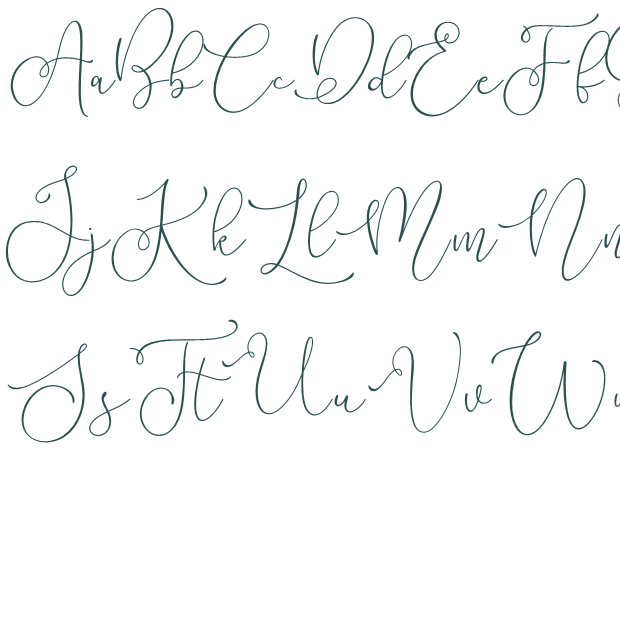 AaBbCcDdEeFf
JjKkLlMmNn
SsTtUuVvW